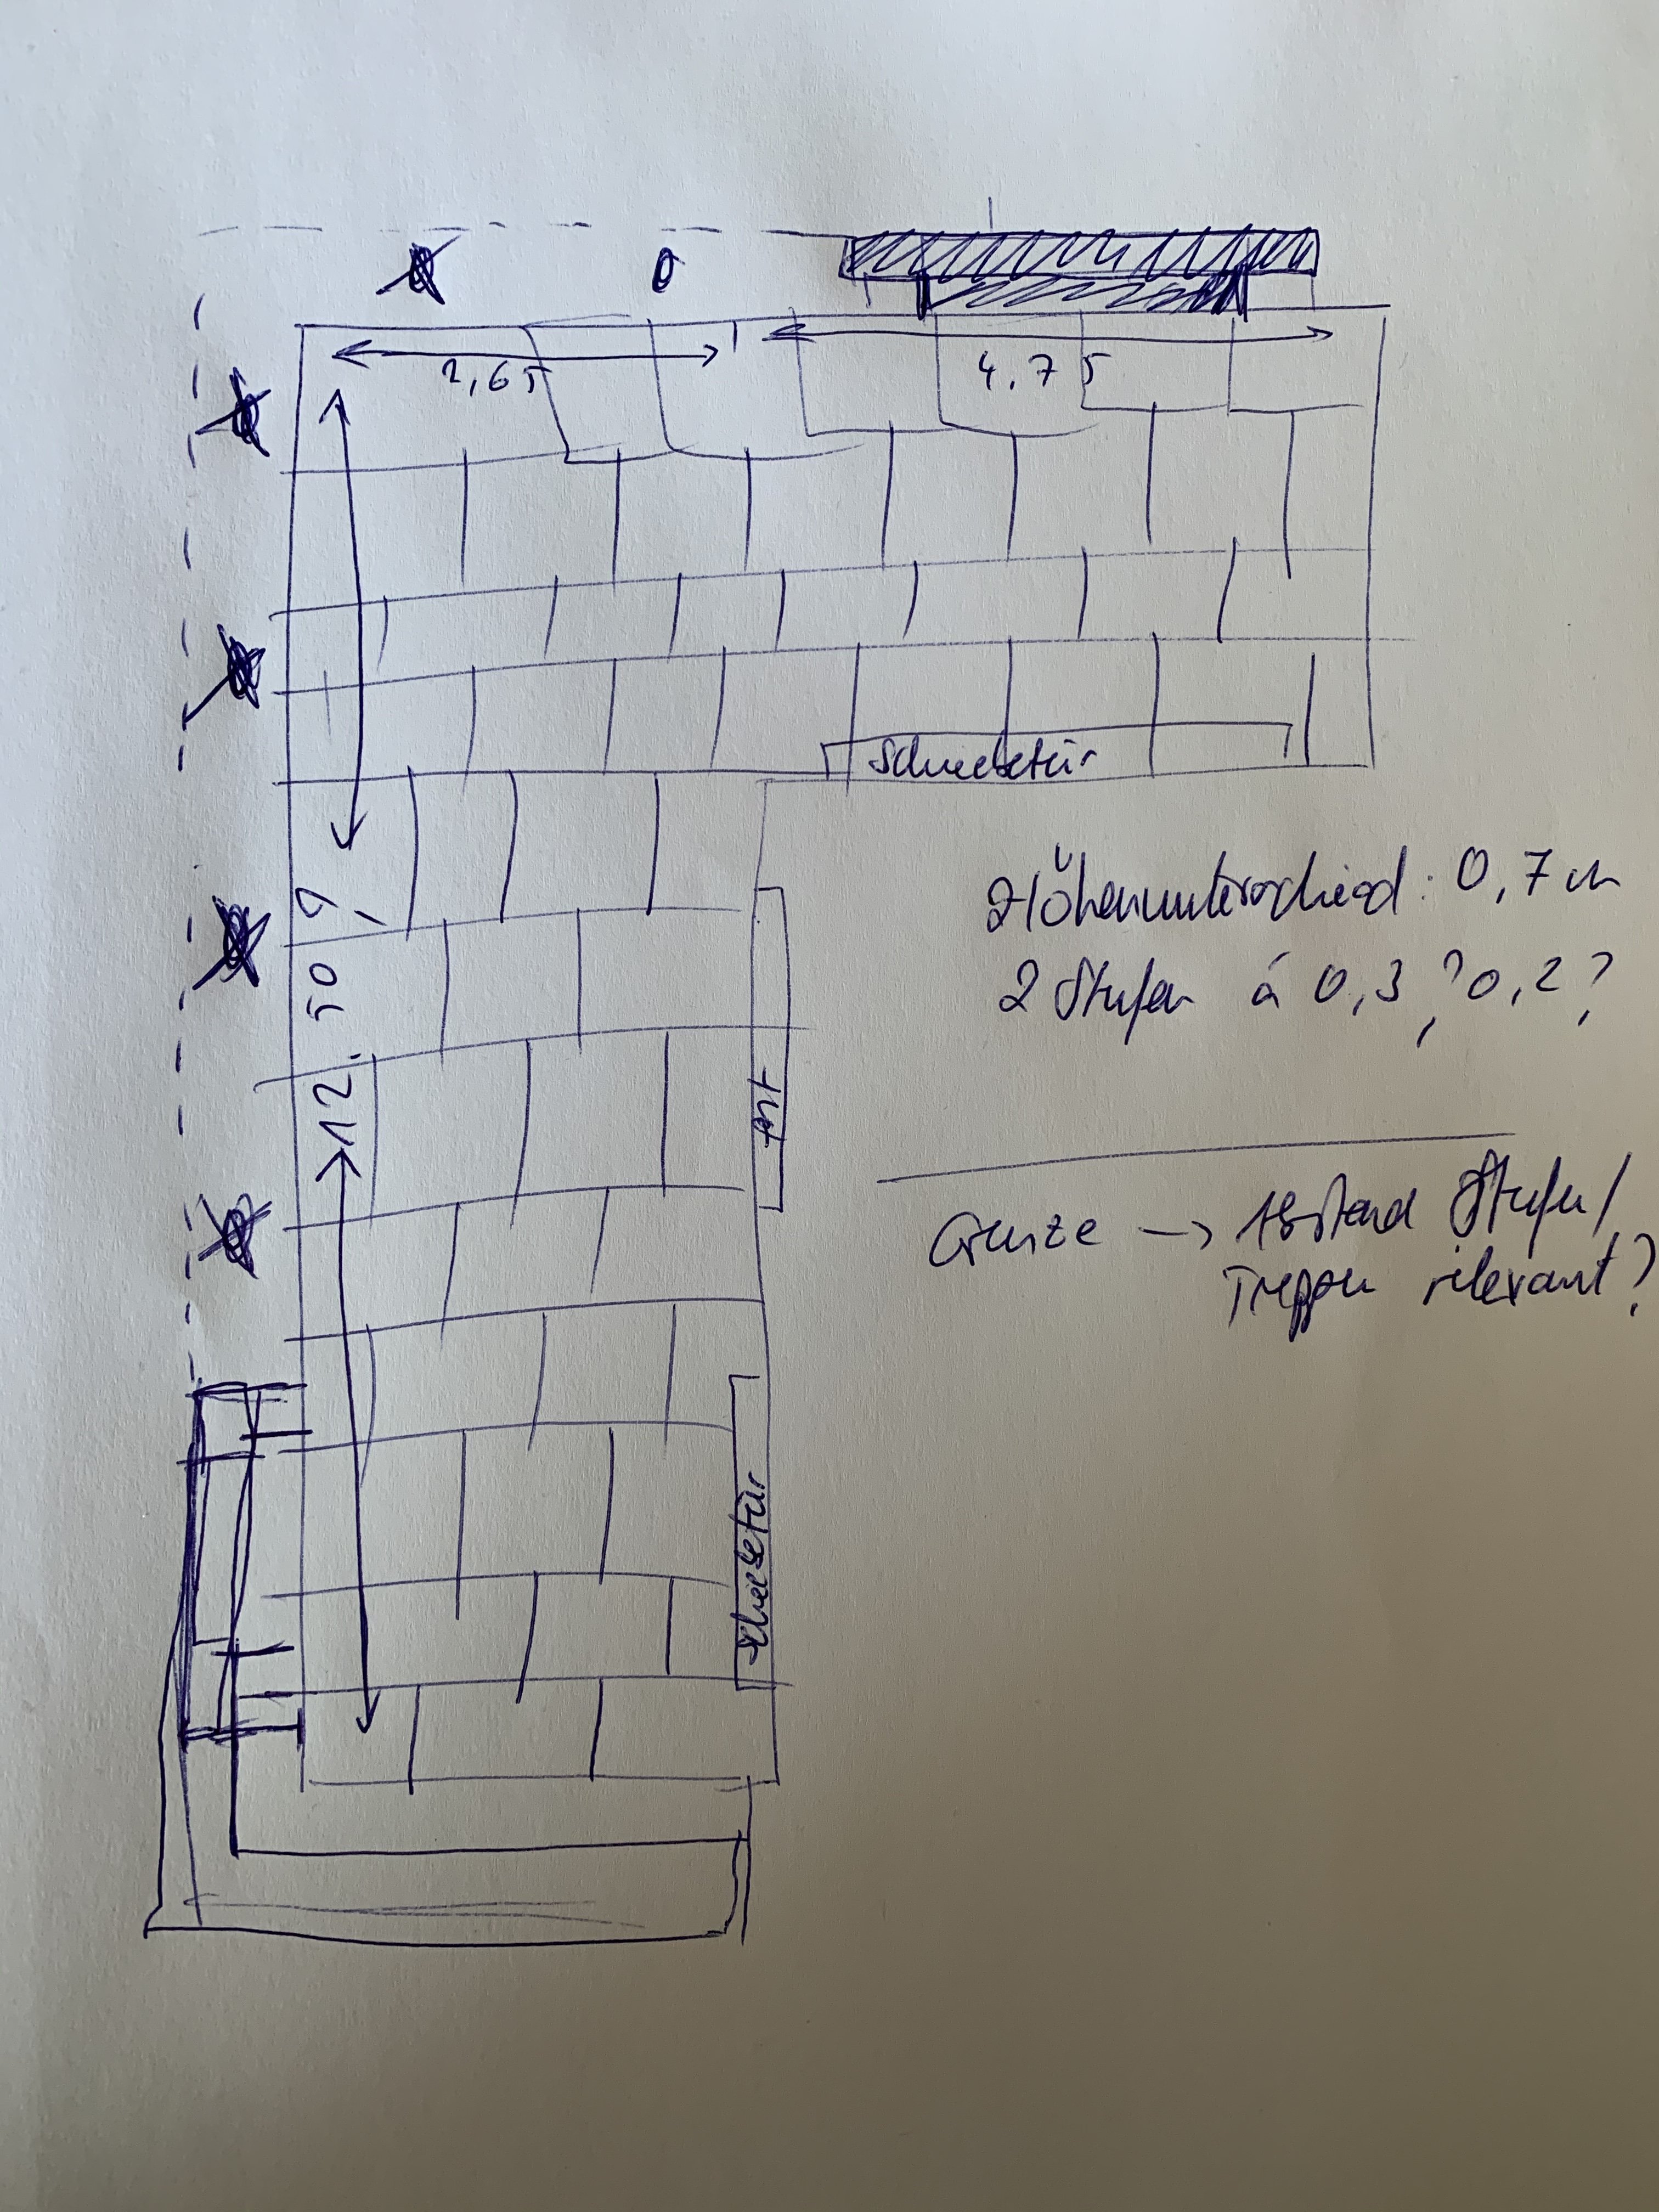 2,65
4.75
Schiebetür
12.50 ?
Höhenunterschied: 0,7 m
2 Stufen á 0,3 ? 0,2 ?
Grenze → Abstand Stufen/
Treppen relevant?
Schiebetür